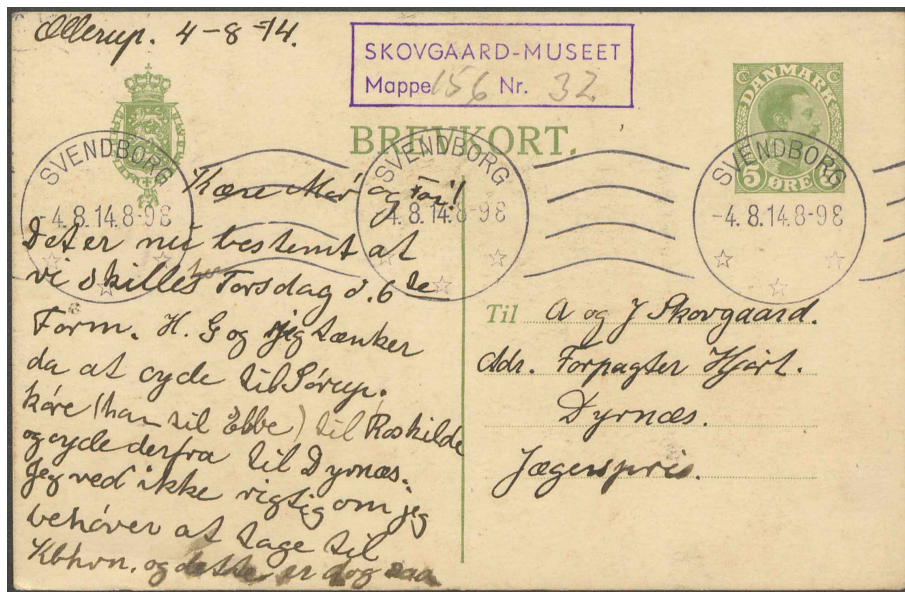 Ollerup. 4-8-14.
SKOVGAARD-MUSEET
Mappe 156 Nr. 32
DANMARK
5 ØRE
BREVKORT.
SVENDBORG
-4.8.14.8-9E
SVENDBORG
4.8.14.8-9E
SVENDBORG
-4.8.14.8-9E
Kære Mor og Far!
Det er nu bestemt at
vi skilles Torsdag d. 6te
Form. H. G og jeg tænker
da at cyde til Sørup.
køre (han til Ebbe) til Roskilde
og cyde derfra til Dyrnæs.
Jeg ved ikke rigtig om jeg
behøver at tage til
Kbhvn. og dette er dog saa
Til A og J Skovgaard.
Adr. Forpagter Hjort.
Dyrnæs.
Jægerspris.